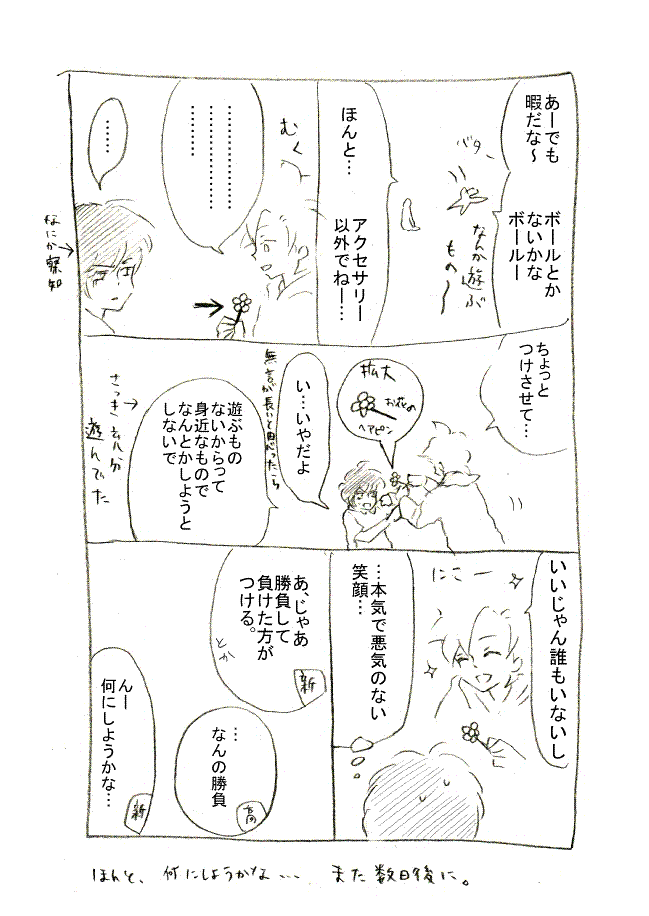 あーでも
暇だな～
ボールとか
ないかな
ボールー
バタ、
なんか遊ぶ
もの～
ほんと…
アクセサリー
以外でねー…
むくっ
…………………
………
……
なにか察知
ちょっと
つけさせて…
拡大
お花の
ヘアピン
い…いやだよ
無言が長いと思ったら
遊ぶもの
ないからって
身近なもので
なんとかしようと
しないで
さっき云八分
遊んでた
いいじゃん誰もいないし
にこー
…本気で悪気のない
笑顔…
あ、じゃあ
勝負して
負けた方が
つける。
とか
新
…
なんの勝負
高
んー
何にしようかな…
新
ほんと、何にしようかな… また数日後に。